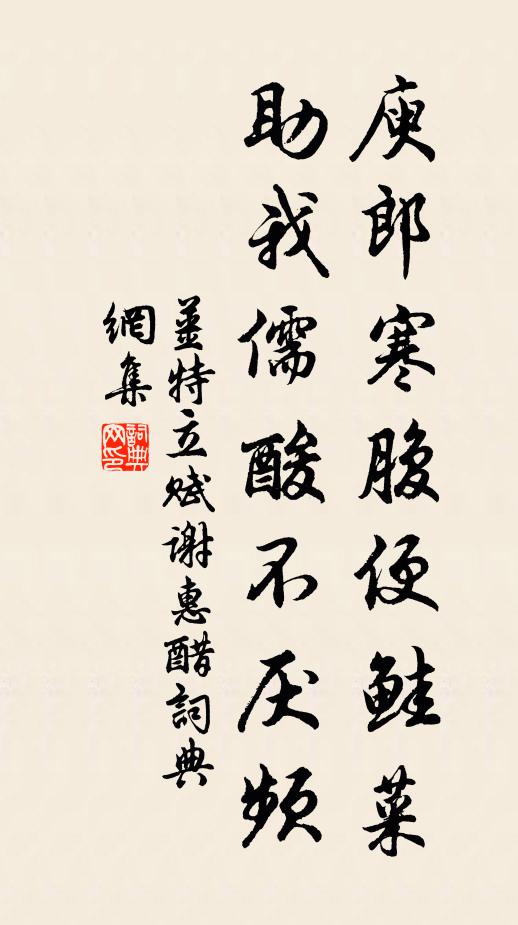 庾郎寒腹便鲑菜
助我儒酸不厌频
薑特立赋谢惠醋詞典
網集
詞典
网印